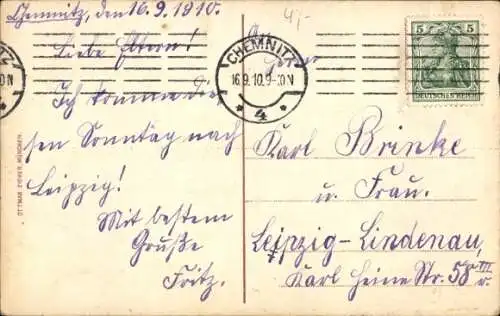 Chemnitz, den 16.9.1910.
Liebe Eltern!
Ich komme die-
sen Sonntag nach
Leipzig!
Mit bestem
Gruße
Fritz.
OTTMAR ZIEHER, MÜNCHEN.
CHEMNITZ
16.9.10.9-10N
* 4 *
5 5
DEUTSCHES REICH
4,-
Karl Brinke
u. Frau.
Leipzig-Lindenau,
Karl Heine Str. 58 III r.